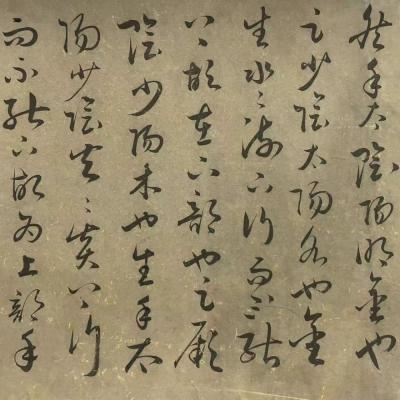 然手太陰陽明金也
足少陰太陽水也金
生水〻流下行而不能
上故在下部也足厥
陰少陽木也生手太
陽少陰火〻炎上行
而不能下故為上部手